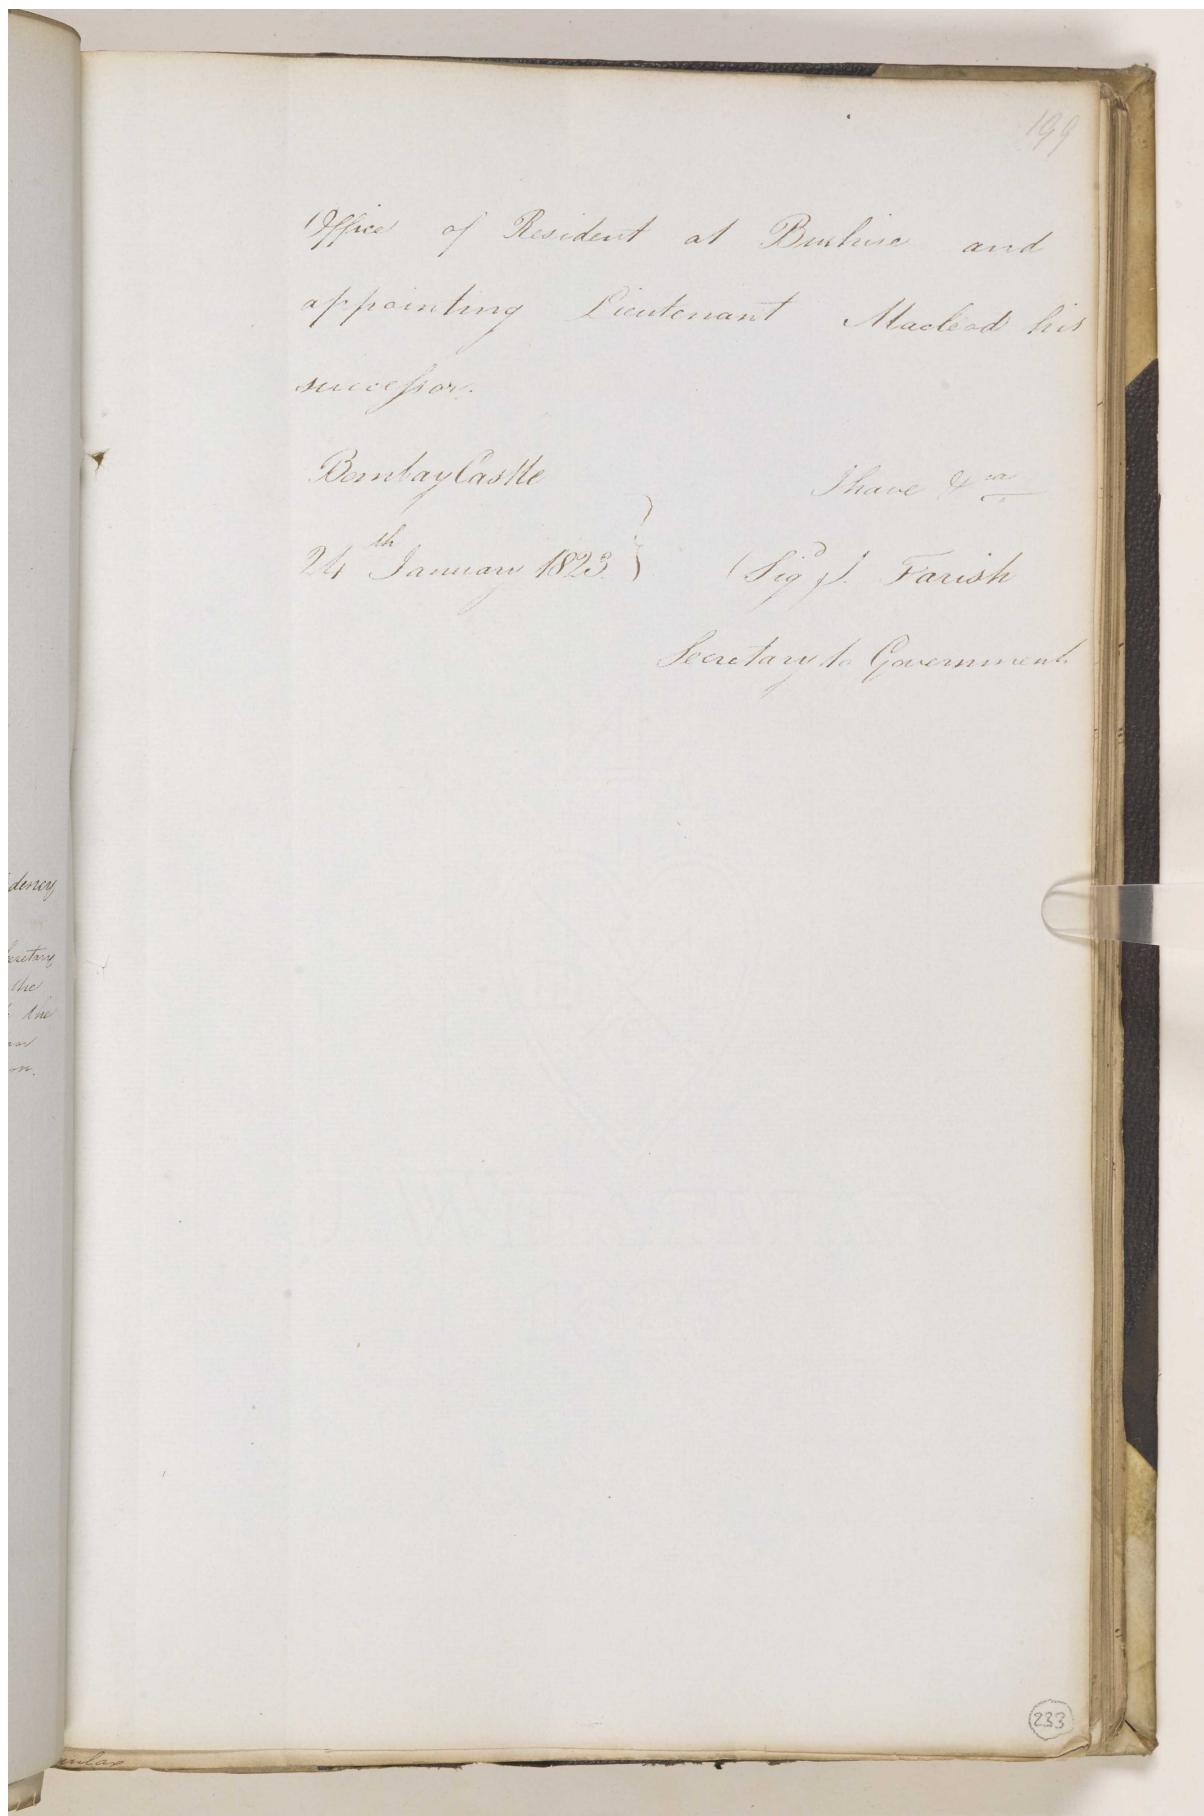 199
Office of Resident at Bushire and
appointing Lieutenant Macleod his
successor.
Bombay Castle
I have &ca
24th January 1823 }
(Sigd) J. Farish
Secretary to Government
dency
the
the
233